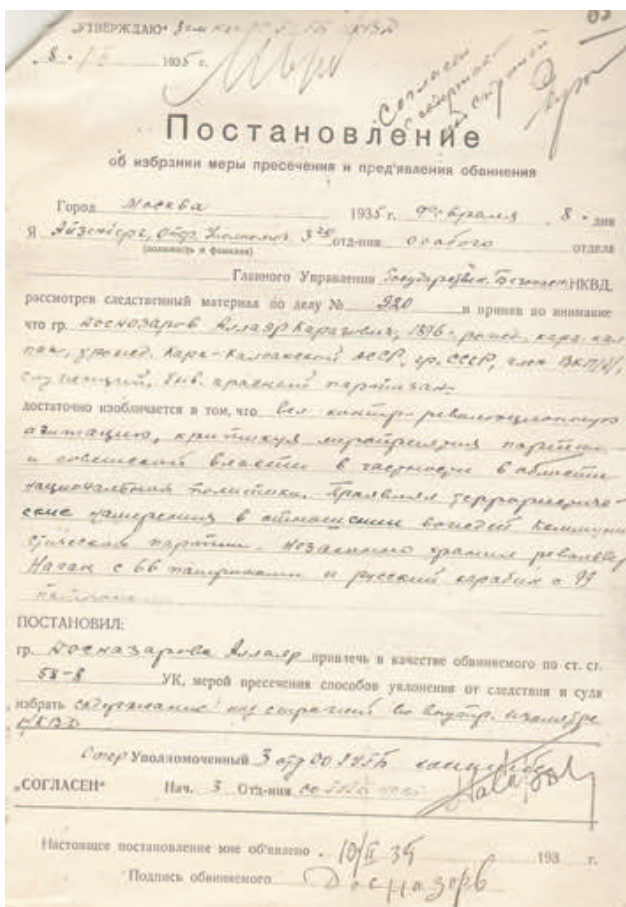 „УТВЕРЖДАЮ“
„8“ II 1935 г.
Согласен
с содержанием
под стражей
Постановление
об избрании меры пресечения и пред'явления обвинения
Город Москва 1935 г. Февраля „8“ дня
Я Айзенберг, Опер. Уполномоч. 3го отд-ния особого отдела
(должность и фамилия)
Главного Управления Государствен. Безопасн. НКВД,
рассмотрев следственный материал по делу № 920 и приняв во внимание
что гр. Досназаров Аллаяр Каразович, 1896 г. рожд., кара-кал
пак, урожед. Кара-Калпакской АССР, гр. СССР, член ВКП/б/,
служащий, быв. красный партизан.
достаточно изобличается в том, что вел контр-революционную
агитацию, критикуя мероприятия партии
и советской власти в частности в области
национальной политики. Проявлял террористиче-
ские намерения в отношении вождей Коммуни
стической партии. Незаконно хранил револьвер
Наган с 66 патронами и русский карабин с 99
патронами
ПОСТАНОВИЛ:
гр. Досназарова Аллаяр привлечь в качестве обвиняемого по ст. ст.
58-8 УК, мерой пресечения способов уклонения от следствия и суда
избрать содержание под стражей во внутр. изоляторе
НКВД
Опер Уполномоченный 3 отд ОО ГУГБ
„СОГЛАСЕН“ Нач. 3 Отд-ния ОО ГУГБ
Настоящее постановление мне об'явлено „10/II 35 193 г.
Подпись обвиняемого Досназарв